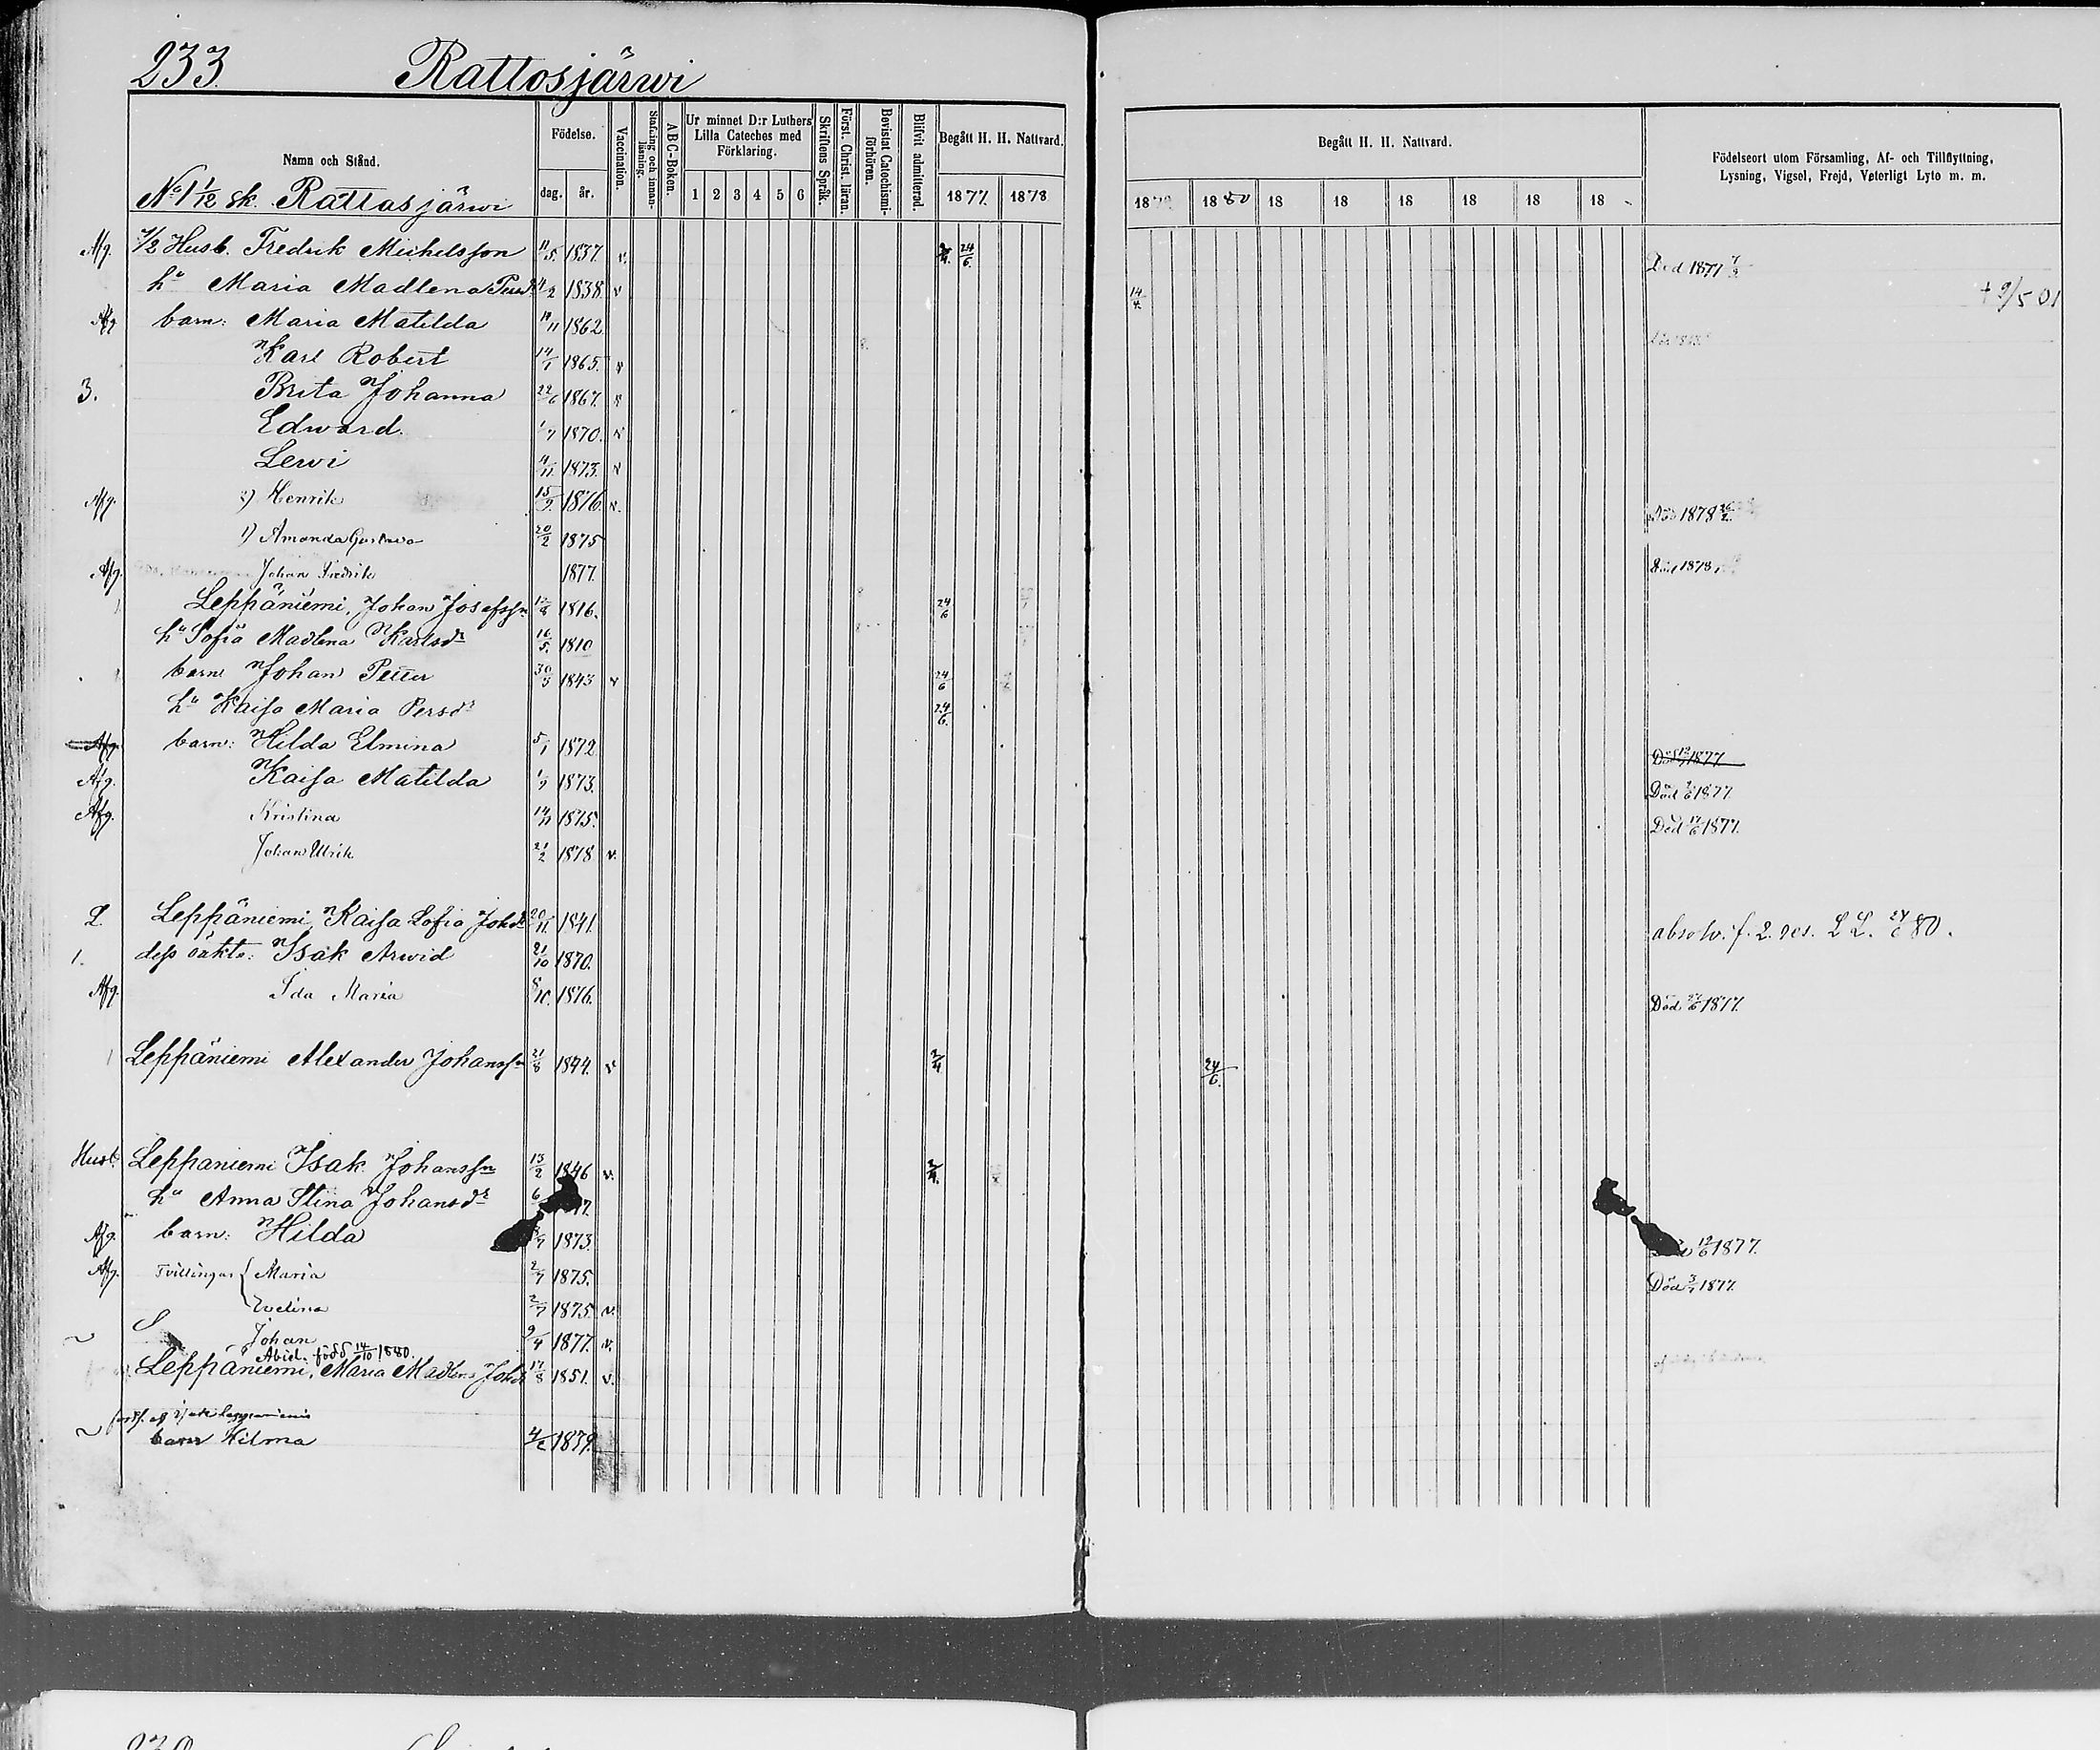 233. Rattosjärwi
Namn och Stånd. Födelse. dag. år. Vaccination. Stafning och innanläsning. A B C-Boken. Ur minnet D:r Luthers Lilla Cateches med Förklaring. 1 2 3 4 5 6 Skriftens Språk. Först. Christ. läran. Bevistat Catechismiförhören. Blifvit admitterad. Begått H. H. Nattvard. 1877. 1878
Begått H. H. Nattvard. 18 1880 18 18 18 18 18 18 Födelseort utom Församling, Af- och Tillflyttning, Lysning, Vigsel, Frejd, Vaterligt Lyto m. m.
No 1 1/12 sk. Rattasjärwi
Afg. 1/2 Husb. Fredrik Michelsson 11/5. 1837. v. 24/6. Död 1877
hu Maria Madlena Persdr 1838. v 14/4 + 9/5 01
Afg barn: Maria Matilda 1862
Karl Robert 14/1 1865. v
3. Brita Johanna 22/6 1867. v
Edward. 1/7 1870. v
Lewi 4/11 1873. v
Afg. 2) Henrik 15/9 1876. v. Död 1878
1) Amanda Gustava 20/2 1875
Afg. Johan Fredrik 1877. Död 1878
Leppäniemi, Johan Josefssn 12/8 1816. 24/6
hu Sofia Madlena Karlsdr 16/5. 1810
barn Johan Petter 30/5 1843 v 24/6
hu Kaisa Maria Persdr 24/6.
Afg. barn: Hilda Elmina 5/1 1872 Död 1877
Afg. Kaisa Matilda 1/7 1873. Död 1877
Afg. Kristina 14/11 1875. Död 17/6 1877.
Johan Ulrik 21/2 1878 v.
L. Leppäniemi, Kaisa Sofia Johdr 20/11 1841. absolv. f. 2. res. L L. 80.
1. dess oäkta: Isak Arwid 21/10 1870.
Afg. Ida Maria 8/10. 1876. Död 1877.
Leppäniemi Alexander Johanssn 21/8 1844. v 2/4 24/6.
Husb. Leppaniemi Isak Johanssn 13/2 1846 v. 2/4.
hu Anna Stina Johansdr 6
Afg. barn: Hilda 1873. 12/6 1877.
Afg. Tvillingar { Maria 2/7 1875. Död 3/7 1877.
Evelina 2/7 1875. v.
Johan 9/4 1877. v.
Abiel. född 14/10 1880.
Leppäniemi, Maria Madlena Johdr 17/8 1851. v.
barn Hilma 1879.